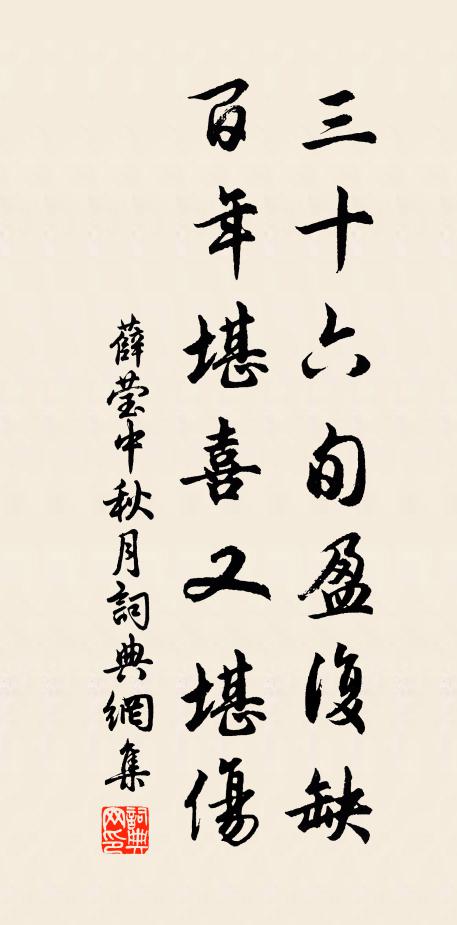 三十六旬盈復缺
百年堪喜又堪傷
薛瑩中秋月詞典網集
詞典
网印